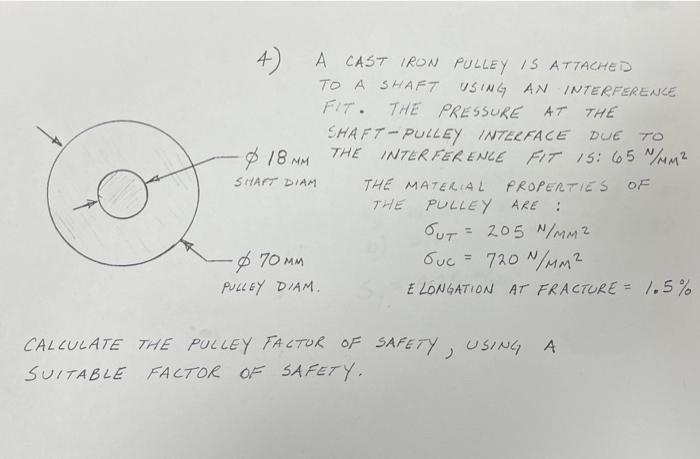 4) A CAST IRON PULLEY IS ATTACHED
TO A SHAFT USING AN INTERFERENCE
FIT. THE PRESSURE AT THE
SHAFT-PULLEY INTERFACE DUE TO
THE INTERFERENCE FIT IS: 65 N/MM²
φ 18 MM
SHAFT DIAM
THE MATERIAL PROPERTIES OF
THE PULLEY ARE :
σUT = 205 N/MM²
σUC = 720 N/MM²
ELONGATION AT FRACTURE = 1.5%
φ 70 MM
PULLEY DIAM.
CALCULATE THE PULLEY FACTOR OF SAFETY, USING A
SUITABLE FACTOR OF SAFETY.